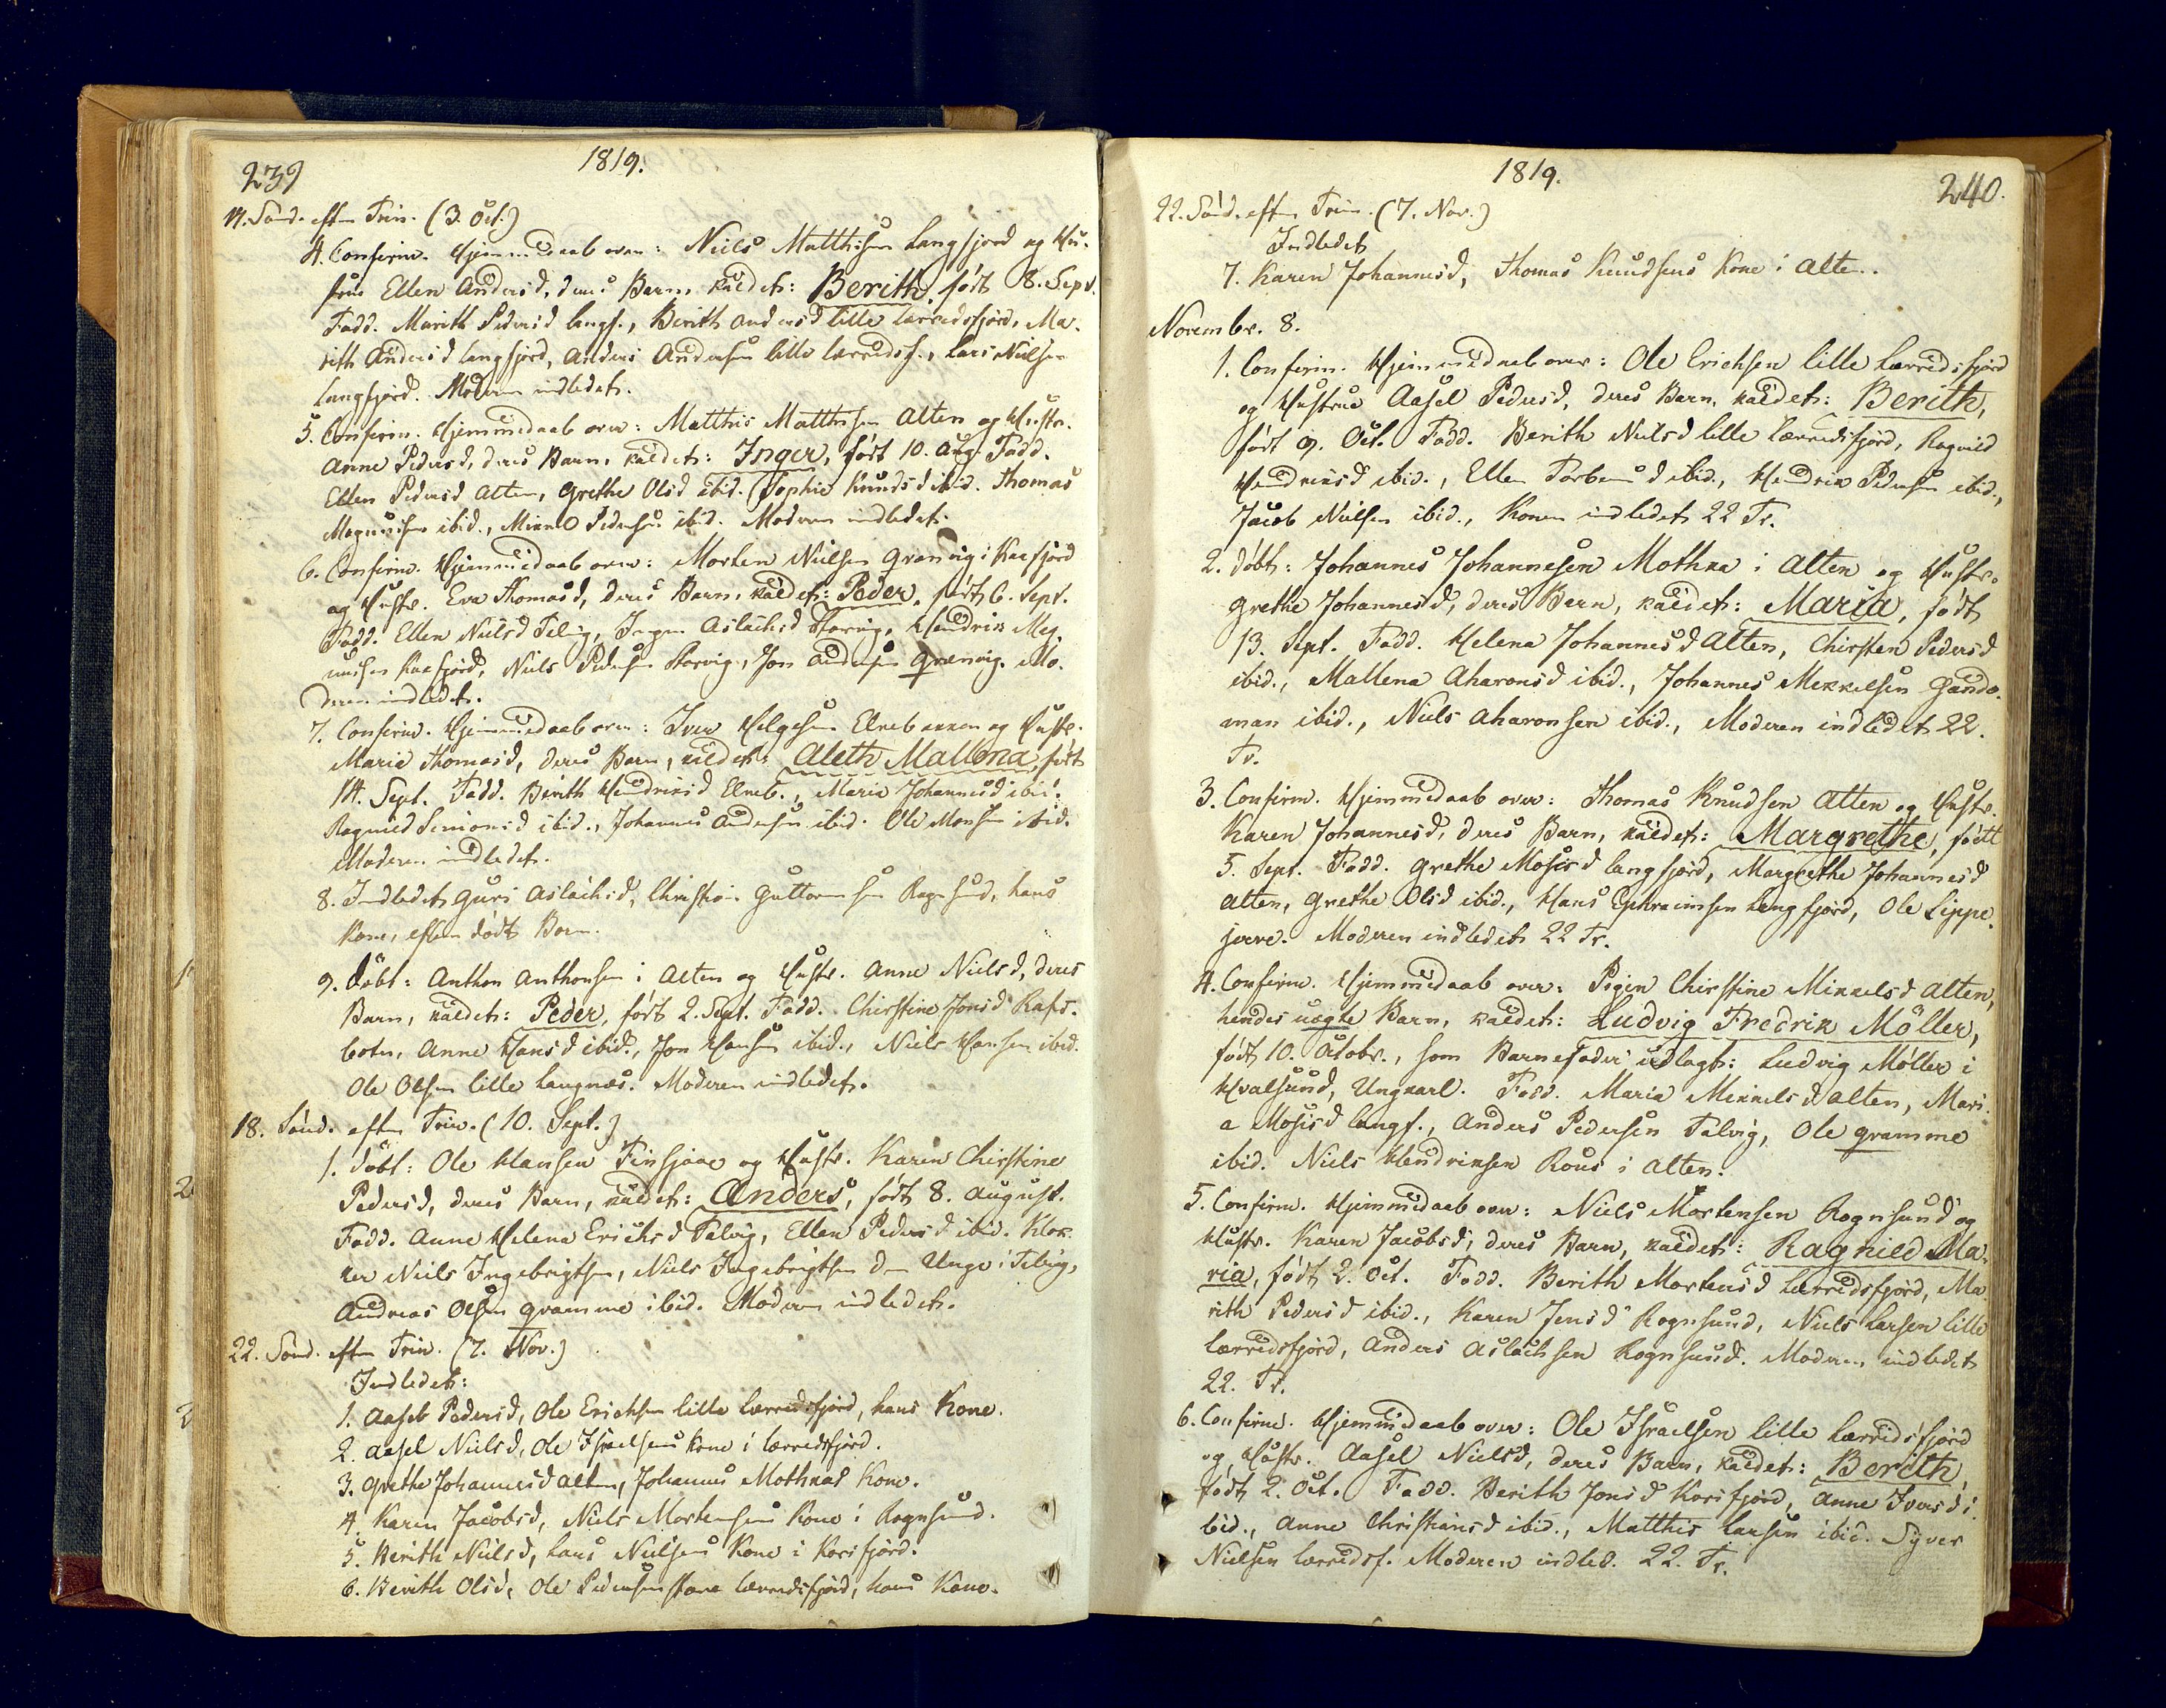 239
1819.
17. Sønd. efter Trin. (3. Oct.)
4. Confirm. Hjemmedaab over: Niels Matthisen Langfjord og Hu-
strue Ellen Andersd, deres Barn, kaldet: Berith, født 8. Sept.
Fadd. Marith Pedersd Langf., Berith Andersd lille Lerredsfjord, Ma-
rith Andersd Langfjord, Anders Andersen lille Lerredsf., Lars Nielsen
Langfjord. Moderen indledet.
5. Confirm. Hjemmedaab over: Matthis Matthisen Alten og Hustr.
Anne Pedersd, deres Barn, kaldet: Inger, født 10. Aug. Fadd.
Ellen Pedersd Alten, Grethe Olsd ibid. Sophie Knudsd ibid. Thomas
Magnussen ibid., Mikkel Pedersen ibid. Moderen indledet.
6. Confirm. Hjemmedaab over: Morten Nielsen Grønvig i Kaafjord
og Hustr. Eva Thomasd, deres Barn, kaldet: Peder, født 6. Sept.
Fadd. Ellen Nielsd Telvig, Inger Aslachsd Storvig, Hendrik Mag-
nussen Kaafjord, Niels Pedersen Storvig, Jon Andersen Grønvig. Mo-
deren indledet.
7. Confirm. Hjemmedaab over: Iver Helgesen Elvebakken og Hustr.
Marie Thomasd, deres Barn, kaldet: Aleth Mallena, født
14. Sept. Fadd. Berith Hendriksd Elveb., Maria Johannesd ibid.
Ragnild Simonsd ibid., Johannes Andersen ibid. Ole Monsen ibid.
Moderen indledet.
8. Indledet Guri Aslachsd, Christian Guttormsen Rognsund, hans
Kone, efter dødt Barn.
9. Døbt: Anthon Anthonsen i Alten og Hustr. Anne Nielsd, deres
Barn, kaldet: Peder, født 2. Sept. Fadd. Chirstine Jonsd Rafs-
botn, Anne Hansd ibid., Jon Hansen ibid., Niels Hansen ibid.
Ole Olsen lille Langnæs. Moderen indledet.
18. Sønd. efter Trin. (10. Sept.)
1. Døbt: Ole Hansen Finsjaae og Hustr. Karen Chirstine
Pedersd, deres Barn, kaldet: Anders, født 8. August.
Fadd. Anne Helena Erichsd Talvig, Ellen Pedersd ibid. Klok-
ker Niels Ingebrigtsen, Niels Ingebrigtsen den Unge i Telvig,
Andreas Olsen Gramme ibid. Moderen indledet.
22. Sønd. efter Trin. (7. Nov.)
Indledet:
1. Aasel Pedersd, Ole Erichsen lille Lerredsfjord, hans Kone.
2. Aasel Nielsd, Ole Israelsens Kone i Lerredsfjord.
3. Grethe Johannesd Alten, Johannes Mothkas Kone.
4. Karen Jacobsd, Niels Mortensens Kone i Rognsund.
5. Berith Nielsd, Lars Nielsens Kone i Korsfjord.
6. Berith Olsd, Ole Pedersen store Lerredsfjord, hans Kone.
1819.
240.
22. Sønd. efter Trin. (7. Nov.)
Indledet
7. Karen Johannesd, Thomas Knudsens Kone i Alten.
Novembr. 8.
1. Confirm. Hjemmedaab over: Ole Erichsen lille Lerredsfjord
og Hustrue Aasel Pedersd, deres Barn, kaldet: Berith,
født 9. Oct. Fadd. Berith Nielsd lille Lerredsfjord, Ragnild
Hendriksd ibid., Ellen Torbensd ibid., Hendrik Pedersen ibid.,
Jacob Nielsen ibid., Konen indledet 22 Tr.
2. Døbt: Johannes Johannesen Mothka i Alten og Hustr.
Grethe Johannesd, deres Barn, kaldet: Maria, født
13. Sept. Fadd. Helena Johannesd Alten, Chirsten Pedersd
ibid., Mallena Aharonsd ibid., Johannes Mekkelsen Gando-
man ibid., Niels Aharonsen ibid., Moderen indledet 22.
Tr.
3. Confirm. Hjemmedaab over: Thomas Knudsen Alten og Hustr.
Karen Johannesd, deres Barn, kaldet: Margrethe, født
5. Sept. Fadd. Grethe Mosisd Langfjord, Margrethe Johannesd
Alten, Grethe Olsd ibid., Hans Ephraimsen Langfjord, Ole Lippe-
jerve. Moderen indledet 22 Tr.
4. Confirm. Hjemmedaab over: Pigen Chirstine Mikkelsd Alten,
hendes uægte Barn, kaldet: Ludvig Fredrik Möller,
født 10. Octobr., som Barnefader udlagt: Ludvig Møller i
Hvalsund, Ungkarl. Fadd. Maria Mikkelsd Alten, Mari-
a Mosisd Langf., Anders Pedersen Talvig, Ole Gramme
ibid. Niels Hendriksen Rous i Alten.
5. Confirm. Hjemmedaab over: Niels Mortensen Rognsund og
Hustr. Karen Jacobsd, deres Barn, kaldet: Ragnild Ma-
ria, født 2. Oct. Fadd. Berith Mortensd Lerredsfjord, Ma-
rith Pedersd ibid., Karen Jensd Rognsund, Niels Larsen lille
Lerredsfjord, Anders Aslachsen Rognsund. Moderen indledet
22. Tr.
6. Confirm. Hjemmedaab over: Ole Israelsen lille Lerredsfjord
og Hustr. Aasel Nielsd, deres Barn, kaldet: Berith,
født 2. Oct. Fadd. Berith Jonsd Korsfjord, Anne Iversd i-
bid., Anne Christiansd ibid., Matthis Larsen ibid. Syver
Nielsen Lerredsf. Moderen indled. 22. Tr.